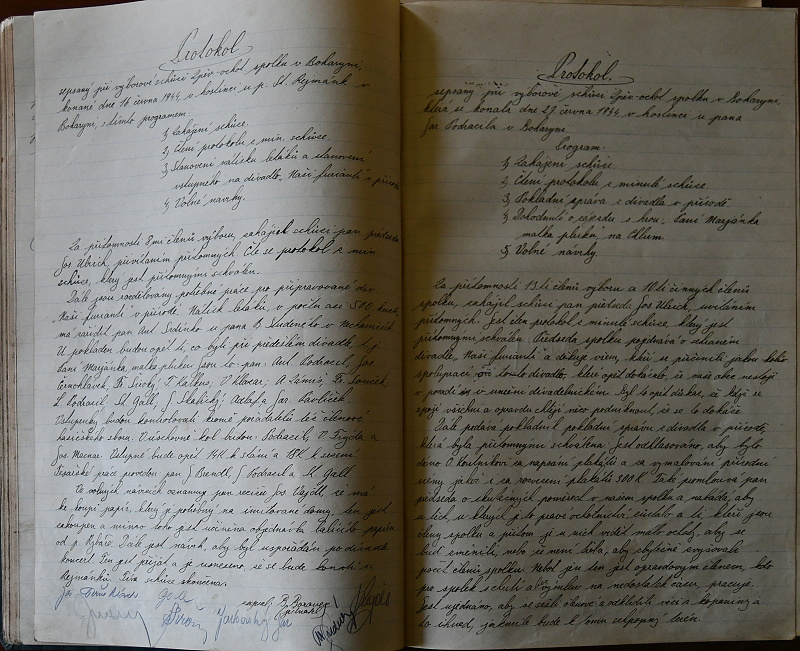 Protokol
sepsaný při výborové schůzi Zpěv-ochot spolku v Boharyni,
konané dne 16 června 1944, v hostinci u p. St. Rejmánk v
Boharyni, s tímto programem:
1, Zahájení schůze.
2, Čtení protokolu s min. schůze.
3, Stanovení nátisku letáků a stanovení
vstupného na divadlo „Naši furianti" v přírodě
4, Volné návrhy.
Za přítomnosti 8mi členů výboru, zahájil schůzi pan předseda
Jos Ulrich, přivítáním přítomných. Čte se protokol s min
schůze, který jest přítomnými schválen.
Dále jsou rozdělovány potřebné práce pro připravované div.
„Naši furianti v přírodě. Nátisk letáků, v počtu asi 500 kusů,
má zařídit pan Ant u pana B. v Nechanicích
U pokladen budou opět ti, co byli při předešlém divadle, t. j.
„Paní Marjánka, matka pluku" jsou to: pan: Ant. Podracil, Jos
Černohlávek, Fr Široký, J. Kalhous, V. Klacer, A. Fr.
L Podracil, St. Gáll, J Skalický, a Jar Havlíček.
Vstupenky budou kontrolovati kromě pořadatelů též členové
hasičského sboru. U úschovny kol budou: Podracil, V. a
Jos Macnar. Vstupné bude opět 14K k stání a 18K k sezení.
Tesařské práce provedou pan J Brendl, J Podracil a St Gáll
Ve volných návrzích oznamuje pan režisér Jos Vajdl, že má
ke koupi papír, který je potřebný na imitované domy, ten jest
zakoupen a mimo toho jest učiněna objednávka balicího papíru
od p. Rybáře. Dále jest návrh, aby byl uspořádán po divadle
koncert. Ten jest přijat a je usneseno, že se bude konati u
Rejmánků. Tím schůze skončena.
zapsal: B. Boranej
jednatel
Gáll
Široký Jar
Protokol.
sepsaný při výborové schůzi Zpěv-ochot spolku v Boharyni,
která se konala dne 27 června 1944 v hostinci u pana
Jar Podracila v Boharyni.
Program:
1, Zahájení schůze.
2, Čtení protokolu s minulé schůze.
3, Pokladní zpráva s divadla v přírodě
4, Rohodnutí o zájezdu s hrou „Paní Marjánka
matka pluku", na Chlum.
5, Volné návrhy.
Za přítomnosti 13.ti členů výboru a 10.ti činných členů
spolku, zahájil schůzi pan předseda Jos Ulrich, uvítáním
přítomných. Jest čten protokol s minulé schůze, který jest
přítomnými schválen. Předseda spolku pojednává o sehraném
divadle „Naši furianti" a děkuje všem, kteří se přičinili jakou koliv
spoluprací při tomto divadle, které opět dokázalo, že naše obec nestojí
v pozadí v umění divadelnickém. Byl to opět důkaz, že když se
spojí všichni a opravdu chtějí něco podniknout, že se to dokáže.
Dále podává pokladní k pokladní zprávu s divadla v přírodě,
která byla přítomnými schválena. Jest odhlasováno, aby bylo
dáno O. Kouřníkovi za napsání plakátů a za vymalování přírodní
scény jakož i za rozvození plakátů 300 K. Také promlouvá pan
předseda o skutečných poměrech v našem spolku a nabádá, aby
u těch, u kterých je to pravé ochotnické a ti, kteří jsou
členy spolku a přitom je u nich vidět málo ochoty, aby se
buď změnili, nebo že není třeba, aby zbytečně zvyšovali
počet členů spolku. Neboť jen ten jest opravdovým členem, kdo
pro spolek s chutí a výmluv na nedostatek času, pracuje.
Jest ujednáno, aby se sešli členové a odklidili věci s kopaniny a
to ihned, jakmile bude k tomu